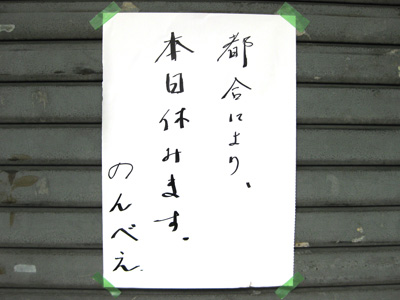 都合により、
本日休みます。
のんべえ